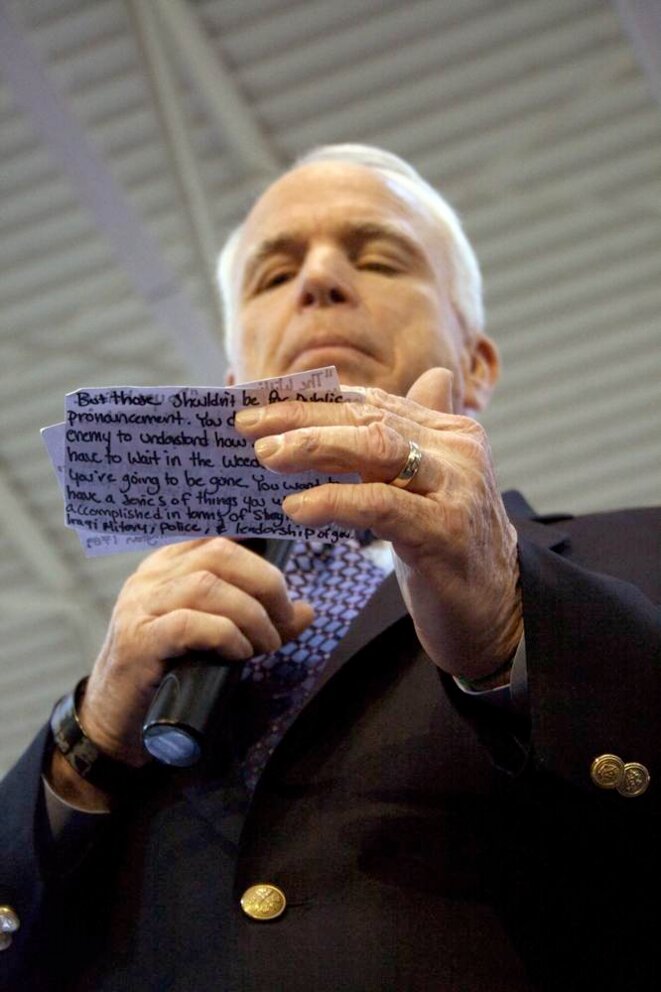 But those shouldn't be for public
pronouncement. You
enemy to understand how
have to wait in the weeds
you're going to be gone. You want to
have a series of things you
accomplished in terms of
Iraqi Military, police, & leadership of gov.
"The